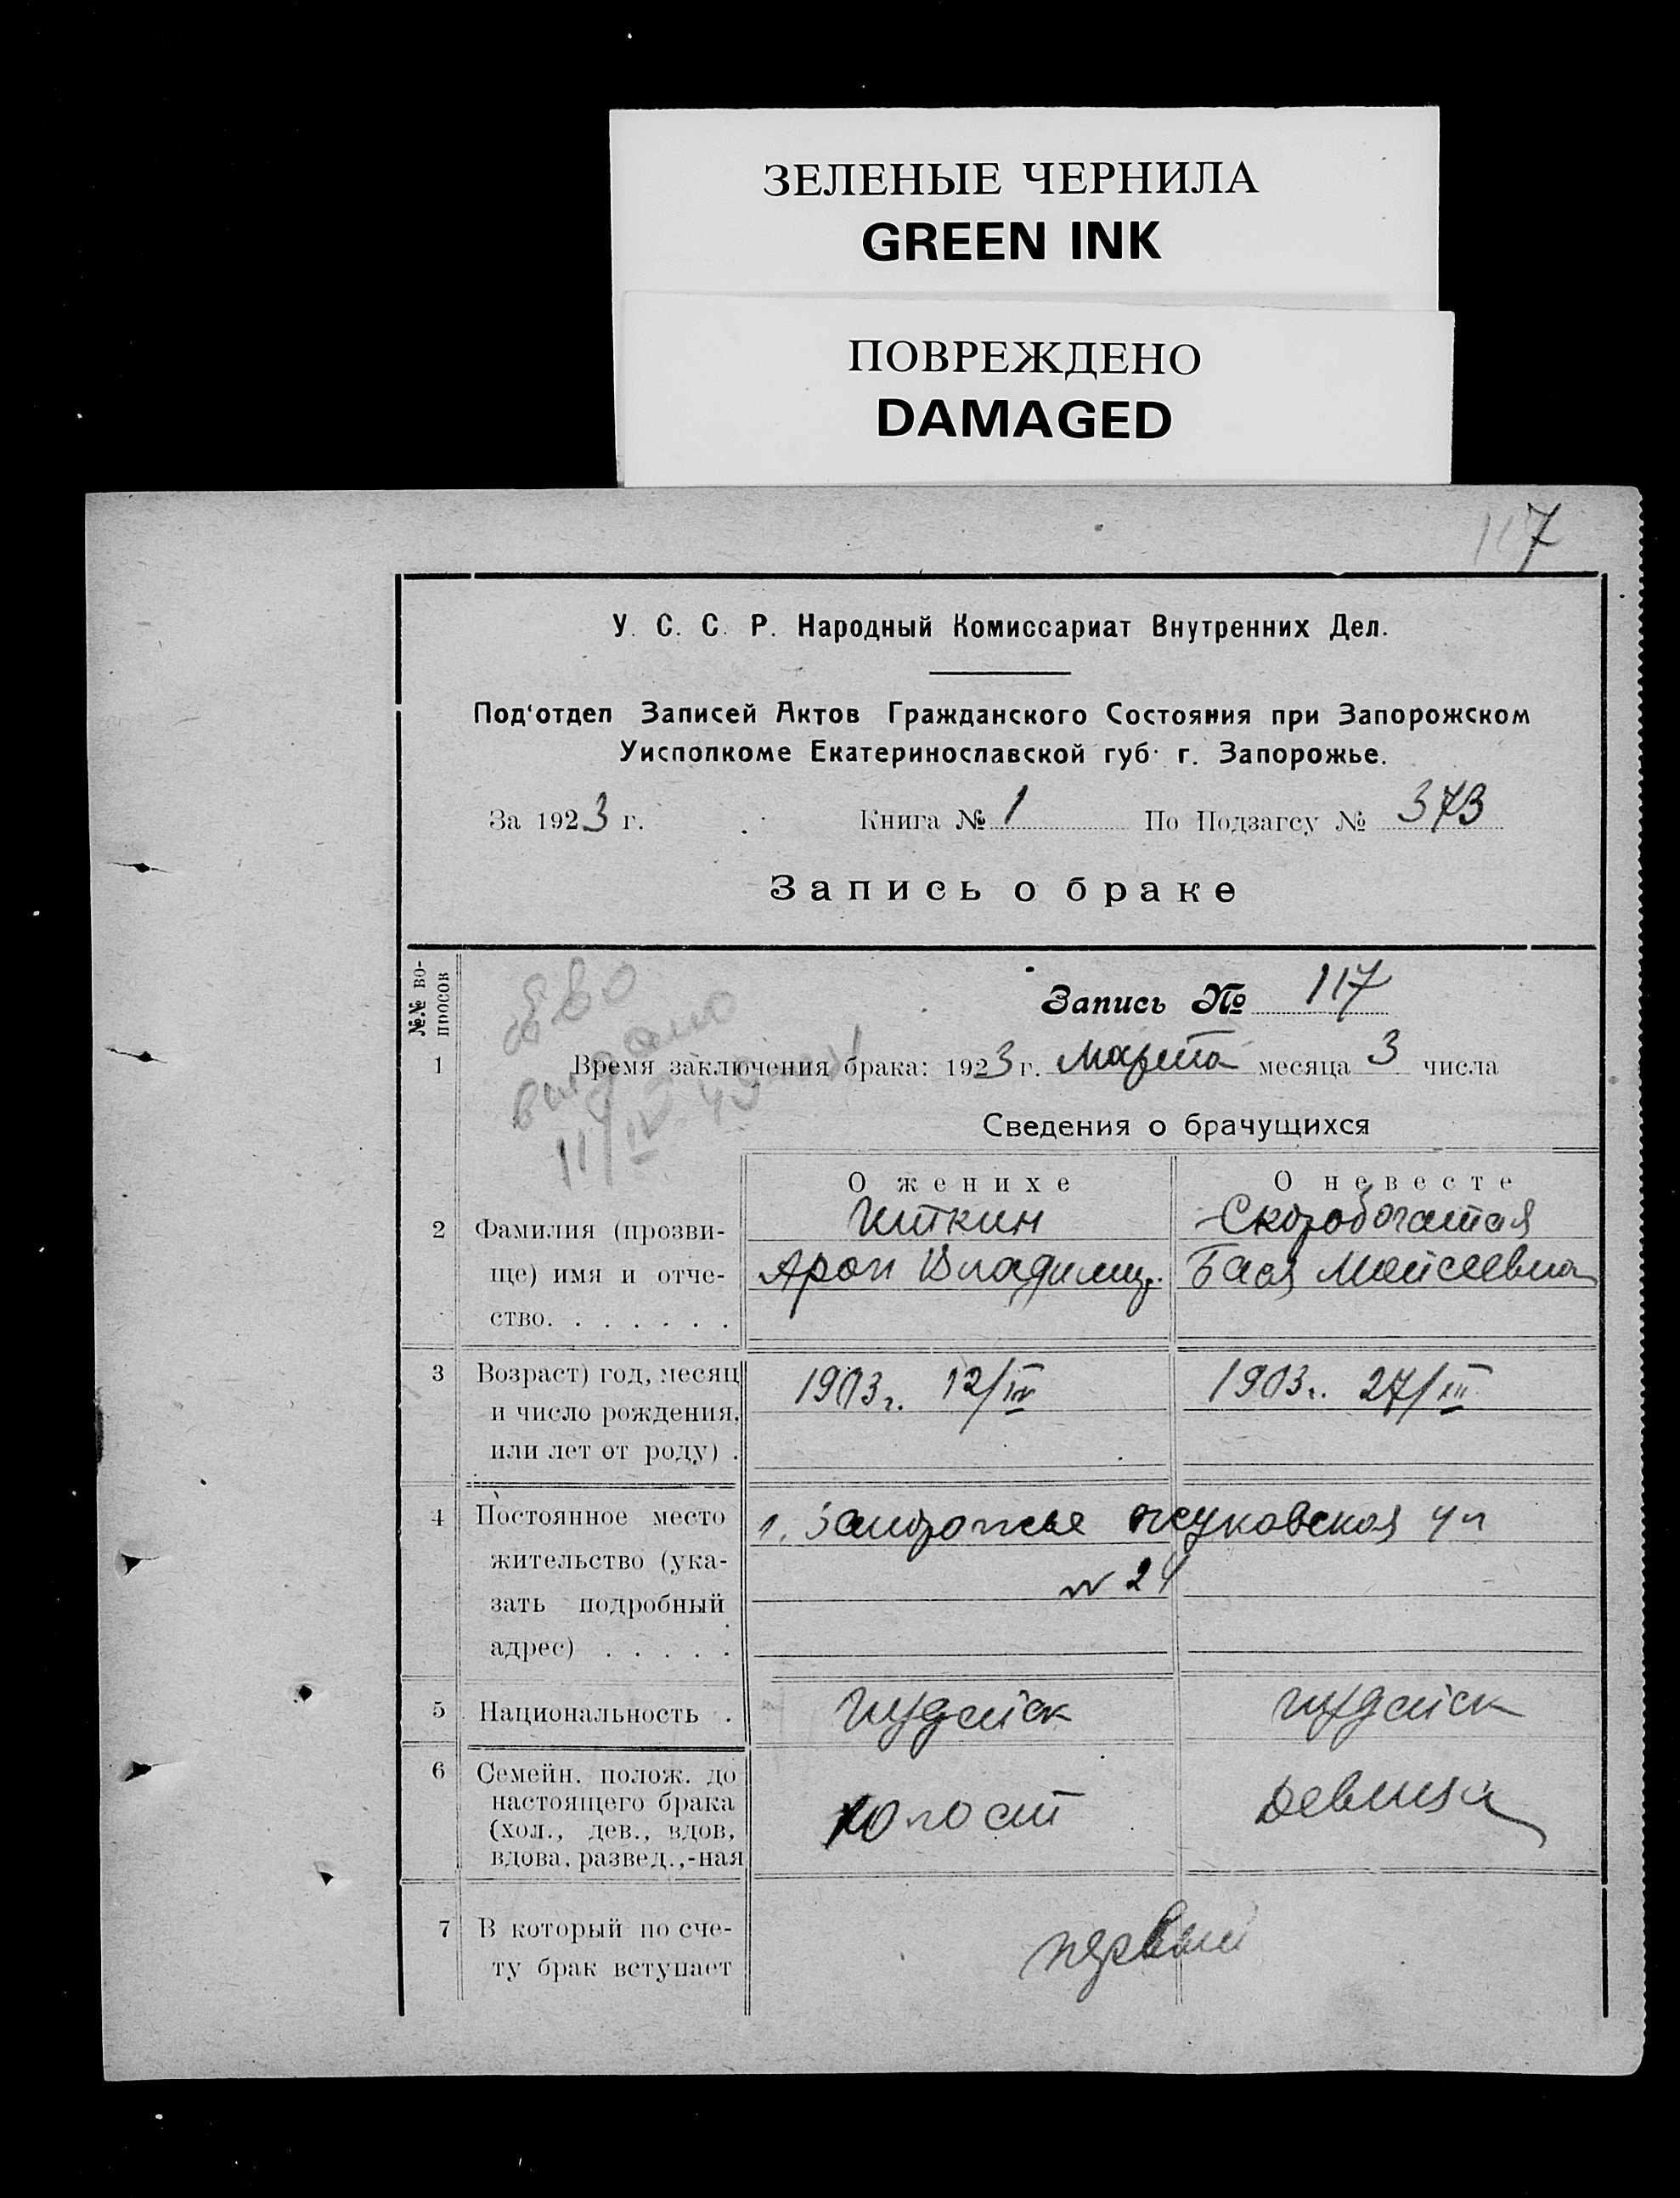 ЗЕЛЕНЫЕ ЧЕРНИЛА
GREEN INK
ПОВРЕЖДЕНО
DAMAGED
117
У. С. С. Р. Народный Комиссариат Внутренних Дел.
Под'отдел Записей Актов Гражданского Состояния при Запорожском
Уисполкоме Екатеринославской губ. г. Запорожье.
За 1923 г. Книга № 1 По Подзагсу № 373
Запись о браке
№№ во-
просов
Запись № 117
выдано
1 Время заключения брака: 1923 г. Марта месяца 3 числа
11/IV
Сведения о брачущихся
О женихе О невесте
2 Фамилия (прозви- Иткин Скоробогатая
ще) имя и отче- Арон Владимир. Бася Моисеевна
ство. . . . . . .
3 Возраст) год, месяц 1903 г. 12/IV 1903 г. 27/III
и число рождения,
или лет от роду) .
4 Постоянное место г. Запорожье Жуковская ул
жительство (ука- № 24
зать подробный
адрес) . . . . .
5 Национальность . Иудейск Иудейск
6 Семейн. полож. до
настоящего брака холост девица
(хол., дев., вдов,
вдова, развед.,-ная
7 В который по сче- первый
ту брак вступает